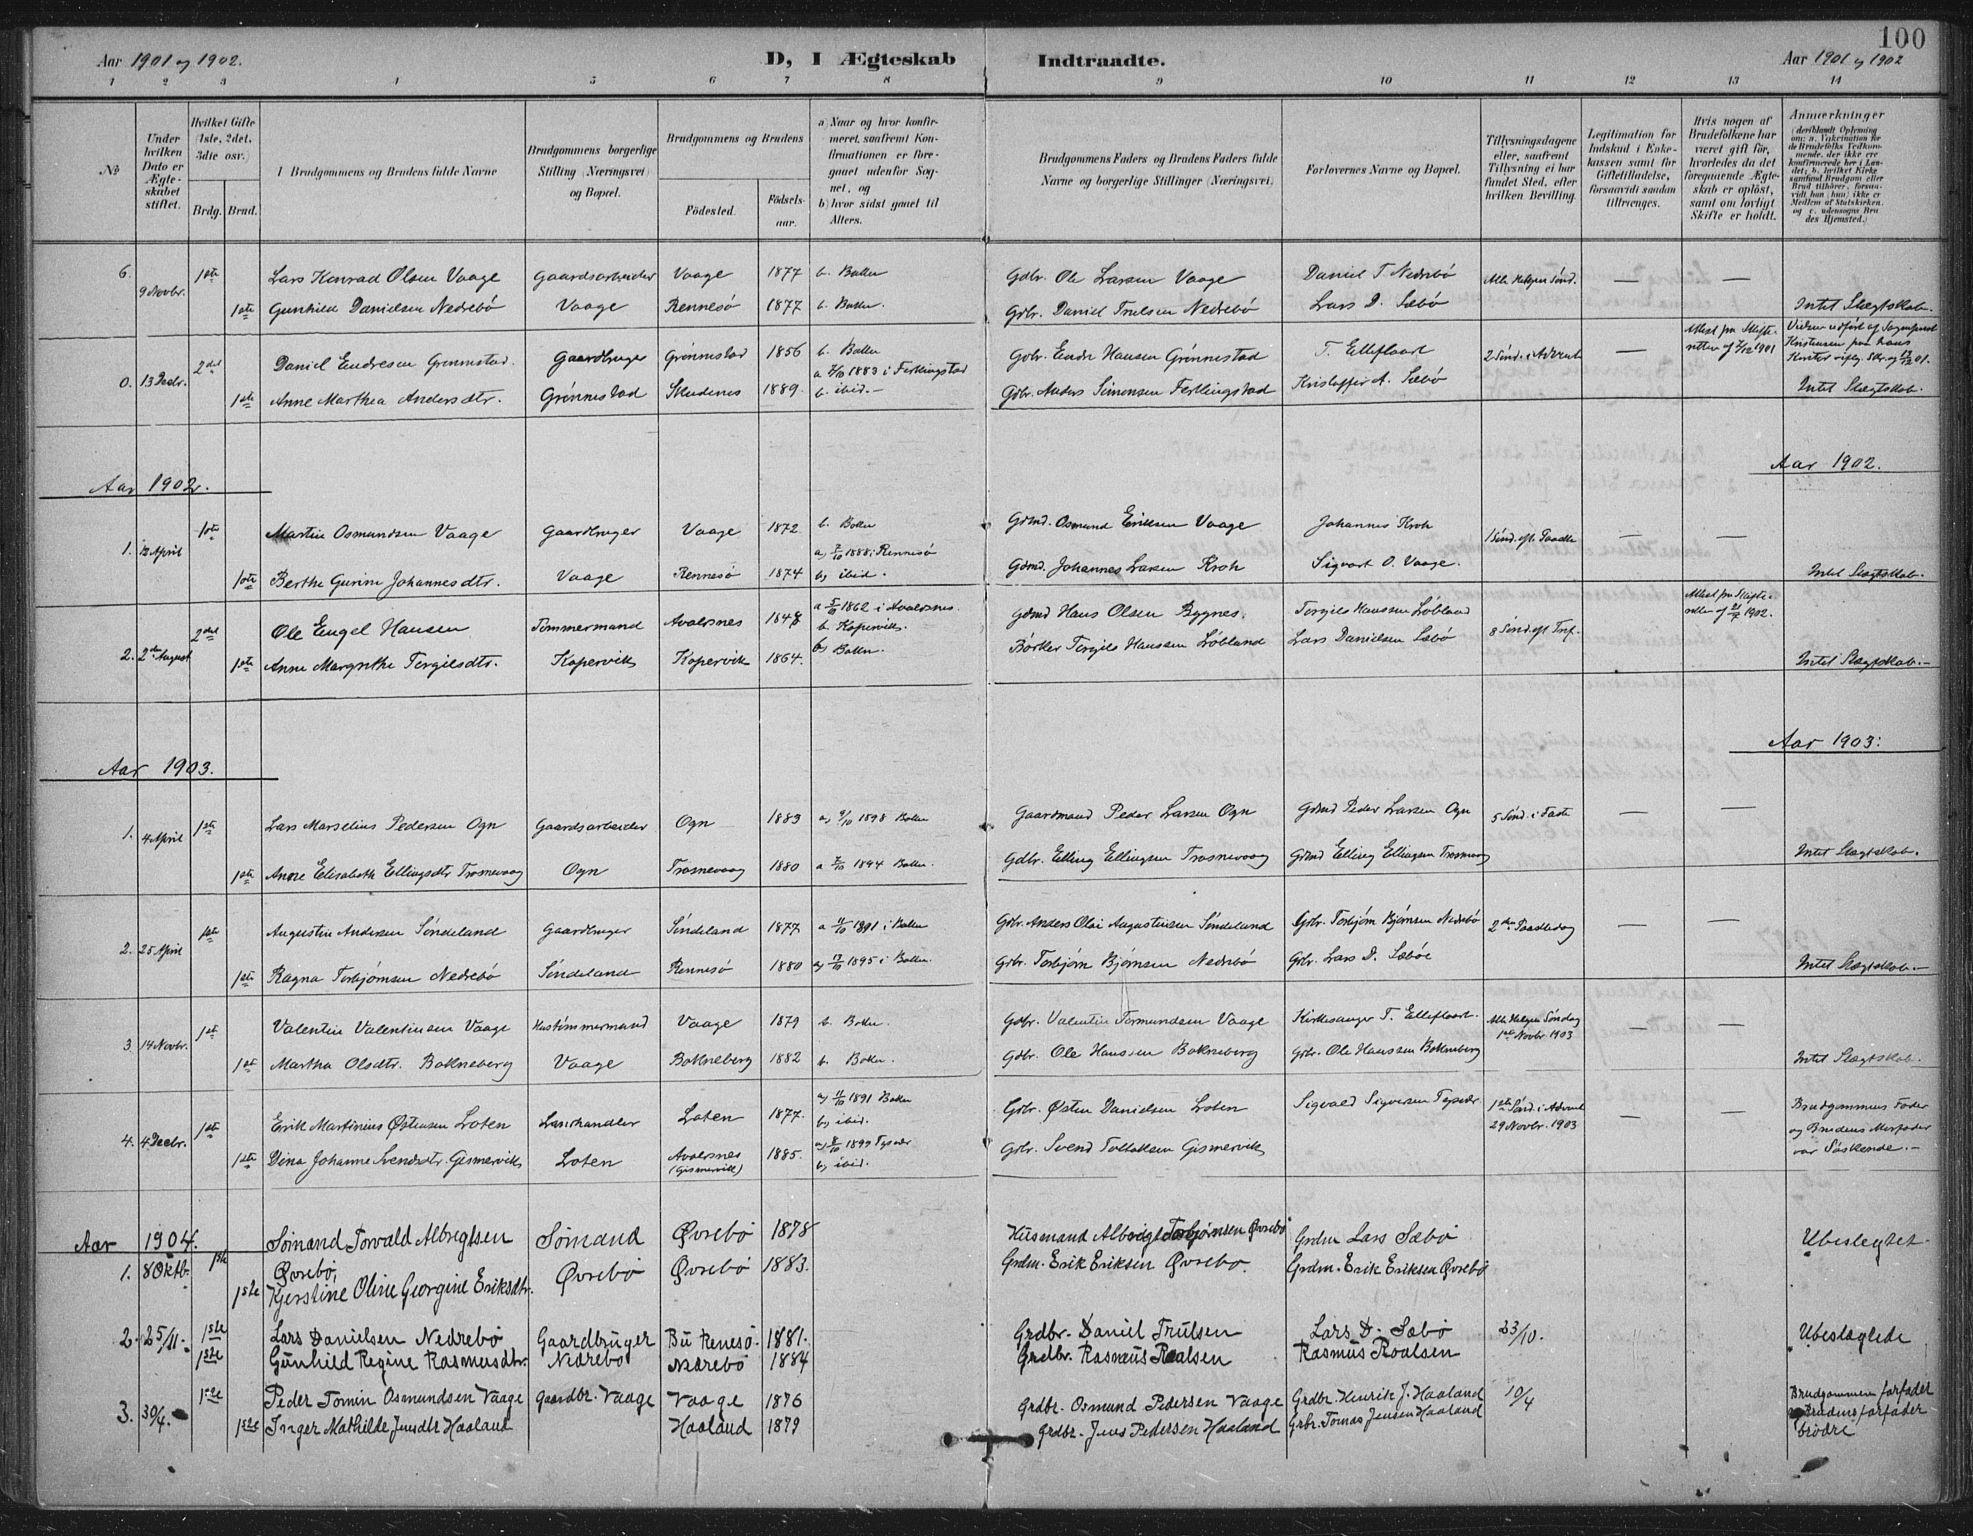 100
Aar 1901 og 1902.
D, I Ægteskab Indtraadte.
Aar 1901 og 1902
1 2 3 4 5 6 7 8 9 10 11 12 13 14
No
Under hvilken Dato er Ægteskabet stiftet.
Hvilket Gifte (1ste, 2det, 3die osv.)
Brdg. Brud.
I Brudgommens og Brudens fulde Navne
Brudgommens borgerlige Stilling (Næringsvei) og Bopæl.
Brudgommens og Brudens
Födested.
Födselsaar.
a) Naar og hvor konfirmeret, saafremt Konfirmationen er foregaaet udenfor Sognet, og
b) hvor sidst gaaet til Alters.
Brudgommens Faders og Brudens Faders fulde Navne og borgerlige Stillinger (Næringsvei)
Forlovernes Navne og Bopæl.
Tillysningsdagene eller, saafremt Tillysning ei har fundet Sted, efter hvilken Bevilling.
Legitimation for Indskud i Enkekassen samt for Giftetilladelse, forsaavidt saadan tiltrænges.
Hvis nogen af Brudefolkene har været gift för, hvorledes da det foregaaende Ægteskab er oplöst, samt om lovligt Skifte er holdt.
Anmerkninger
(deriblandt Oplysning om: a. Vakcination for de Brudefolks Vedkommende, der ikke ere konfirmerede her i Landet; b. hvilket Kirkesamfund Brudgom eller Brud tilhörer, forsaavidt han (hun) ikke er Medlem af Statskirken, og c. udensogns Brudes Hjemsted.)
6. 9 Novbr. 1ste Lars Konrad Olsen Vaage Gaardsarbeider Vaage 1877 b. Bokn Gdbr. Ole Larsen Vaage Daniel T. Nedrebö Alle Helgen Sönd. — —
1ste Gunhild Danielsen Nedrebö Vaage Rennesö 1877 b. Bokn. Gdbr. Daniel Trulsen Nedrebö Lars D. Sæbö Intet Slægtskab.
0. 13 Decbr. 2det Daniel Endresen Grønnestad. Gaardbruger Grønnestad 1856 b. Bokn Gdbr. Endre Hansen Grönnestad T. Elleflaat 2 Sönd. i Advent — Attest fra Skifteretten af 7/12 1901
1ste Anne Marthea Andersdtr. Grönnestad Skudenes 1889. a 7/10 1883 i Ferkingstad b. ibid. — Gdbr. Anders Simonsen Ferkingstad Kristoffer A. Sæbö Intet Slægtskab.
Aar 1902. Aar 1902.
1. 12 April 1ste Martin Osmundsen Vaage Gaardbruger Vaage 1872 b. Bokn Gdmd. Osmund Eriksen Vaage Johannes Kroh 1 Sönd. eft. Paaske — —
1ste Berthe Gurine Johannesdtr. Vaage Rennesö 1874 a, 7/10 1888 i Rennesö b, ibid. Gdmd. Johannes Larsen Kroh Sigvart O. Vaage. Intet Slægtskab.
2. 2den August 2det Ole Engel Hansen Tømmermand Avalsnes 1848 a 5/10 1862 i Avalsnes. b. Kopervik. Gdmd Hans Olsen Bygnes Torgils Hanssen Löbland 8 Sönd. eft Tref. Attest fra Skifteretten af 21/7 1902.
1ste Anne Margrethe Torgilsdtr. Kopervik Kopervik 1864. b, Bokn. Börkler Torgils Hanssen Löbland Lars Danielsen Sæbö Intet Slægtskab.—
Aar 1903. Aar 1903:
1. 4 April 1ste Lars Marselius Pedersen Ogn Gaardsarbeider Ogn 1883 a, 9/10 1898 Bokn Gaardmand Peder Larsen Ogn Gdmd Peder Larsen Ogn 5 Sönd. i Faste — —
1ste Anne Elisabeth Ellingsdtr Trosnevaag Ogn Trosnevaag 1880 a 7/10 1894 Bokn. Gdbr. Elling Ellingsen Trosnevaag Gdmd Elling Ellingsen Trosnevaag Intet Slægtskab.
2. 25 April 1ste Augustin Andersen Söndeland Gaardbruger Söndeland 1877 a 11/10 1891 i Bokn Gdbr. Anders Olai Augustinsen Söndeland Gdbr. Torbjörn Björnsen Nedrebö 2den Paaskedag — —
1ste Ragna Torbjørnsen Nedrebö Söndeland Rennesö 1880 a, 13/10 1895 i Bokn. Gdbr. Torbjörn Björnsen Nedrebö Gdbr. Lars D. Sæböe Intet Slægtskab.—
3. 14 Novbr. 1ste Valentin Valentinsen Vaage Hustömmermand Vaage 1879 b. Bokn. Gdbr. Valentin Tormundsen Vaage Kirkesanger T. Elleflaat. Alle Helgen Söndag 1ste Novbr. 1903 — —
1ste Martha Olsdtr. Bokneberg Vaage Bokneberg 1882 b. Bokn. Gdbr. Ole Hanssen Bokneberg Gdbr. Ole Hanssen Bokneberg Intet Slægtskab.
4. 4 Decbr. 1ste Erik Martinius Østensen Loten Landhandler Loten 1877. a, 11/10 1891 Bokn b, ibid. Gdbr. Østen Danielsen Loten Sigvald Sigversen Tysvær 1ste Sönd. i Advent 29 Novbr. 1903 — — Brudgommens Fader og Brudens Morfader var Söskende.—
1ste Dina Johanne Svendsdtr. Gismervik Loten Avalsnes (Gismervik) 1885. a, 8/10 1899 Tysvær b, ibid. Gdbr. Svend Tollaksen Gismervik
Aar 1904. Sömand Torvald Albregtsen Sömand Øvrebö 1878 Husmand Albregt Torbjørnsen Øvrebö Grdm Lars Sæbö Ubeslegtet
1. 8 Oktb. 1ste Øvrebö, Øvrebö Øvrebö 1883. Grdm. Erik Eriksen Øvrebö. Grdm. Erik Eriksen Øvrebö
1ste Kjerstine Oline Georgine Eriksdtr.
2. 25/11. 1ste Lars Danielsen Nedrebö Gaardbrüger Bü Renesö. 1881. Grdbr. Daniel Trulsen Lars D. Sæbö 23/10. Ubeslegtede
1ste Günhild Regine Rasmusdtr. Nedrebö Nedrebö 1884 Grdbr. Rasmus Roalsen Rasmus Roalsen
3. 30/4. 1ste Peder Tomin Osmundsen Vaage Gaardbr. Vaage Vaage 1876 Grdbr. Osmund Pedersen Vaage Grdbr. Henrik J. Haaland 10/4 Brudgommen forfader
1ste Inger Mathilde Jensdtr Haaland Haaland 1879 Grdbr. Jens Pedersen Haaland Grbr. Tomas Jensen Haaland Brudens forfader brödre